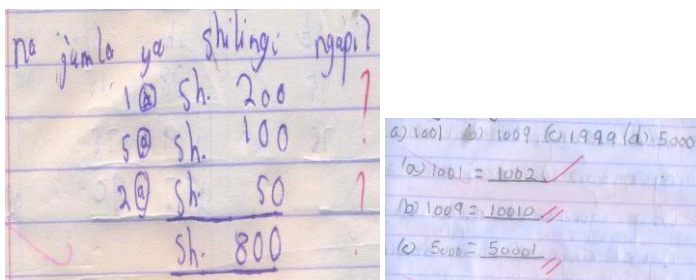 na jumla ya shilingi ngapi?
1 @ sh. 200
5 @ sh. 100
2 @ sh. 50
sh. 800
a) 1001 (b) 1009 (c) 1999 (d) 5000
(a) 1001 = 1002
(b) 1009 = 10010
(c) 5000 = 50001